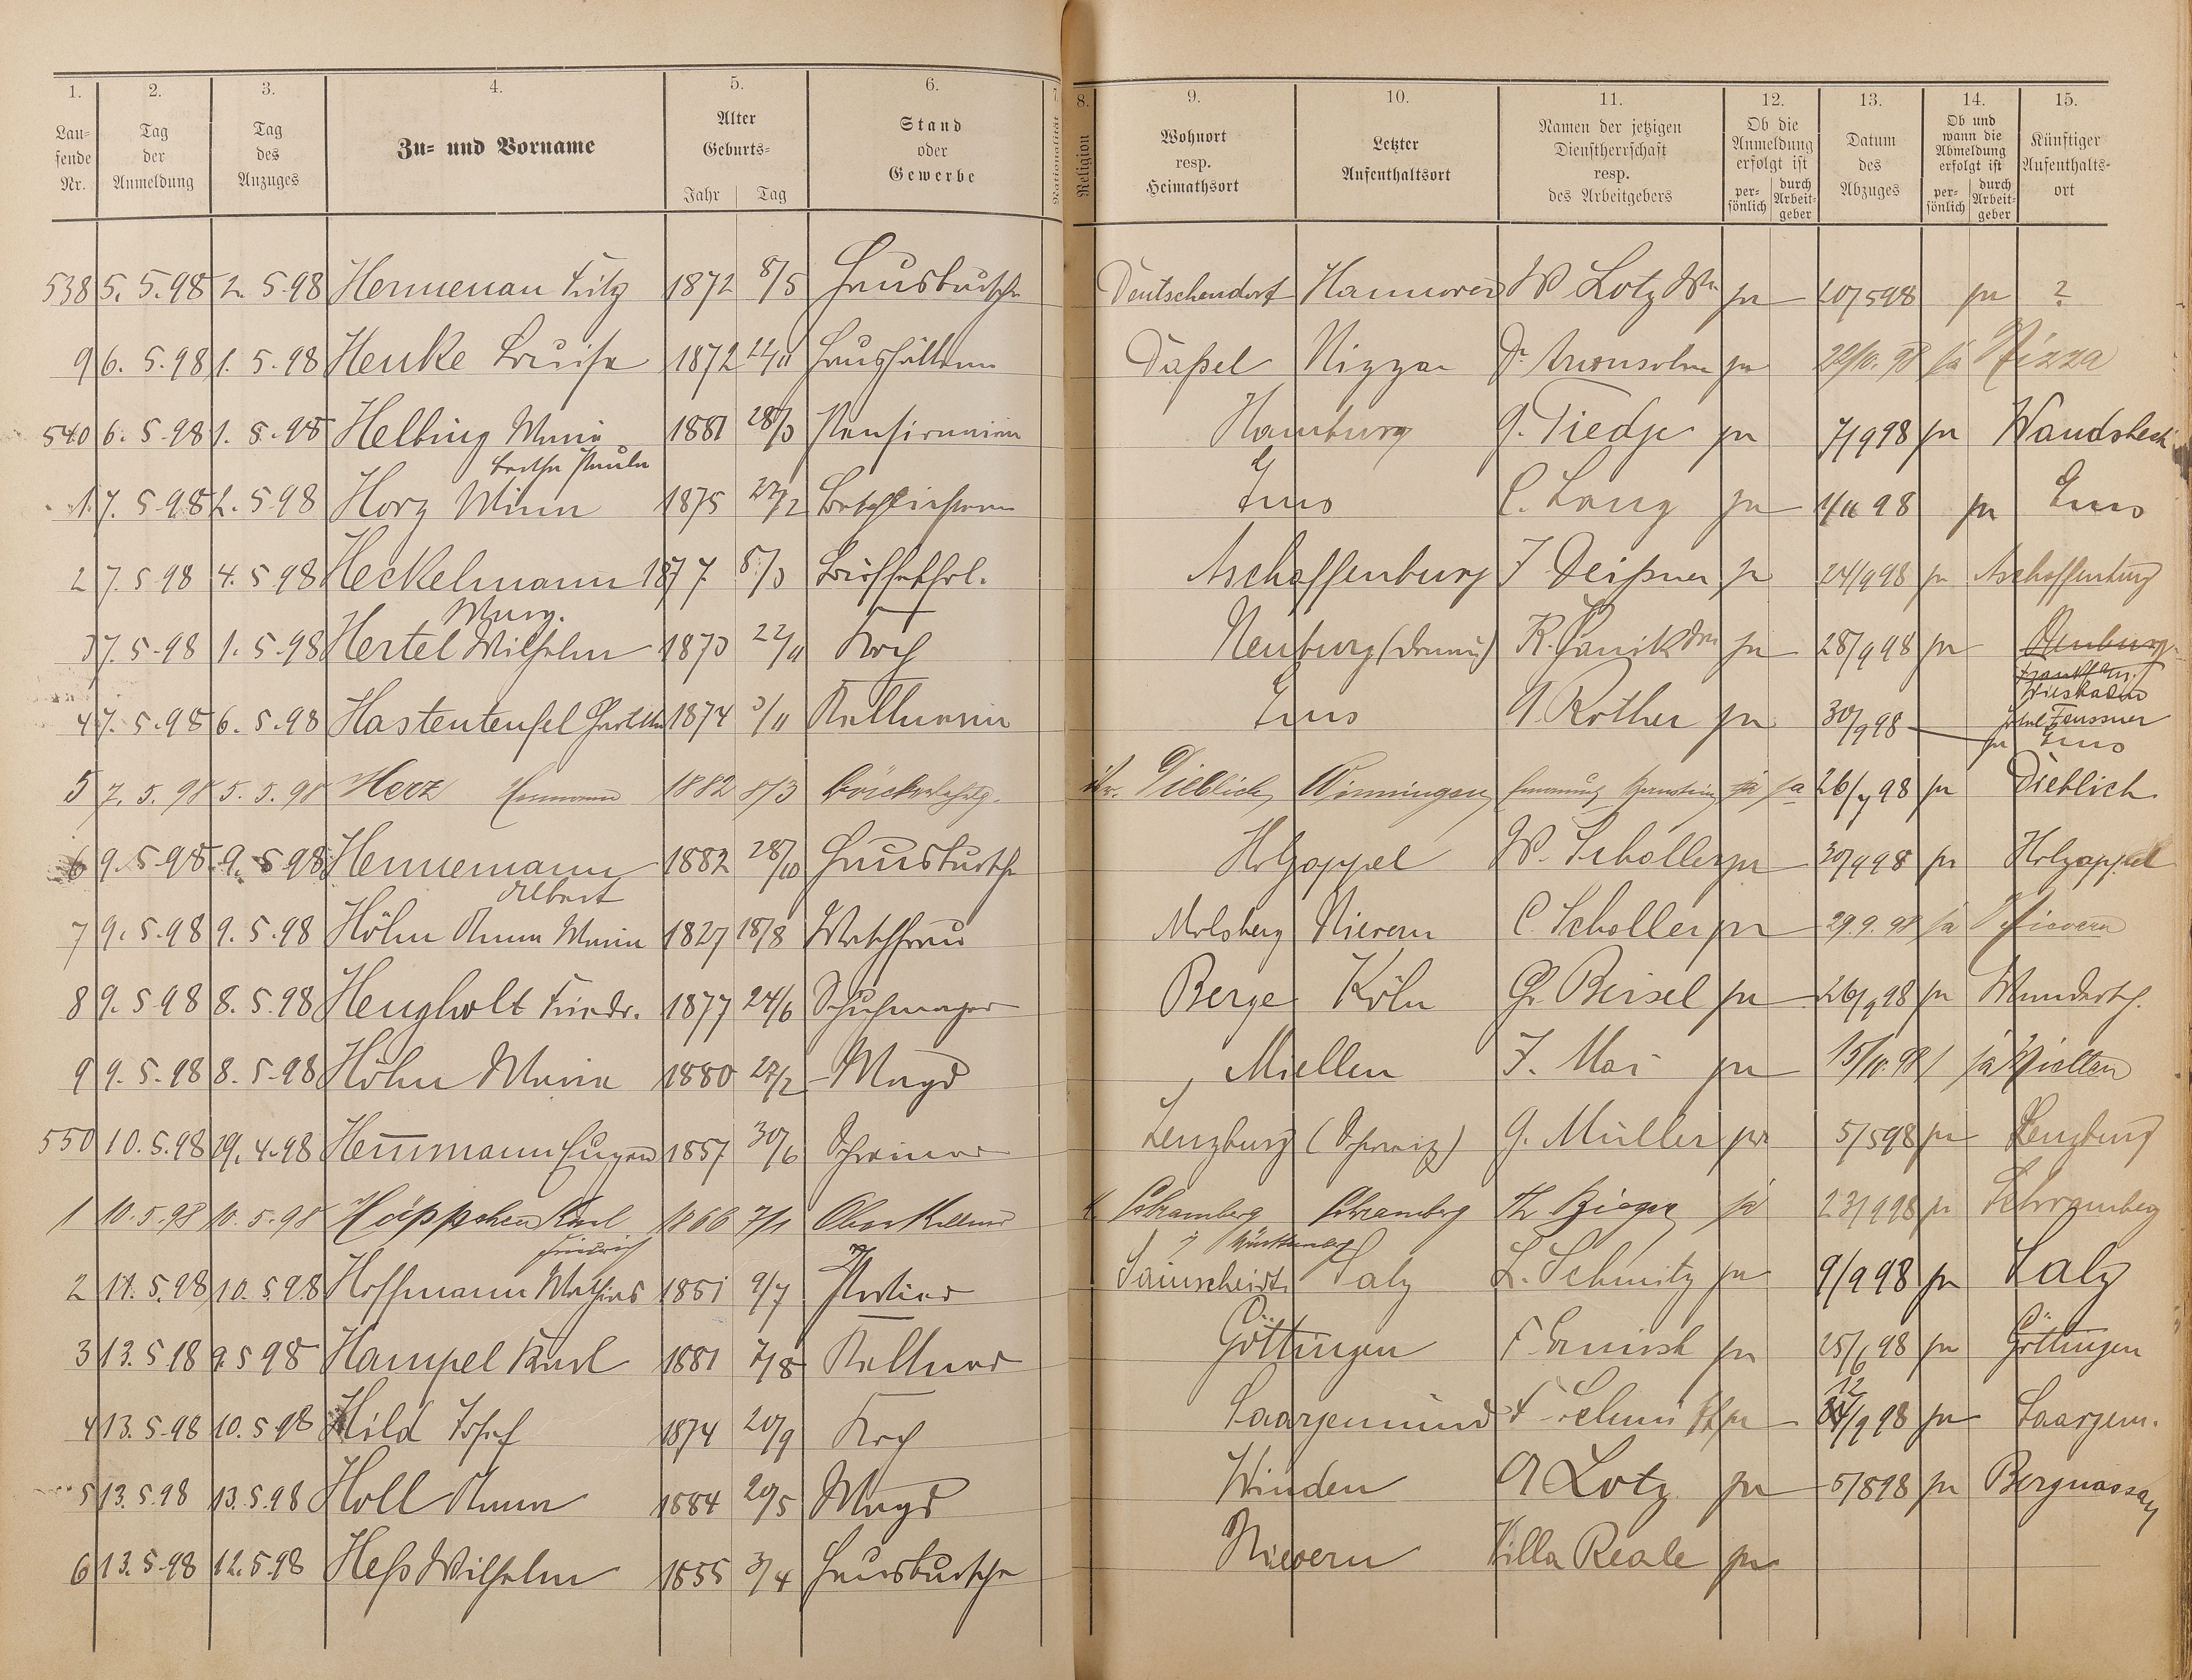 1. 2. 3. 4. 5. 6. 7 8. 9. 10. 11. 12. 13. 14. 15.
Laufende Nr.
Tag der Anmeldung
Tag des Anzuges
Zu- und Vorname
Alter Geburts- Jahr Tag
Stand oder Gewerbe
Nationalität
Religion
Wohnort resp. Heimathsort
Letzter Aufenthaltsort
Namen der jetzigen Dienstherrschaft resp. des Arbeitgebers
Ob die Anmeldung erfolgt ist persönlich durch Arbeitgeber
Datum des Abzuges
Ob und wann die Abmeldung erfolgt ist persönlich durch Arbeitgeber
Künftiger Aufenthaltsort
538 5. 5. 98 2. 5. 98 Hennenau Fritz 1872 8/5 Hausbursche Deutschendorf Hannover W Lotz Ww ja 20/5 98 ja ?
9 6. 5. 98 1. 5. 98 Henke Louise 1872 Haushälterin Daßel Nizza Dr Aronsohn ja 22/10. 98 ja Nizza
540 6. 5. 98 1. 5. 98 Helbing Maria 1881 28/3 Hamburg G. Tiedje ja 7/9 98 ja Wandsbeck
Bertha Paula
1 7. 5. 98 2. 5. 98 Horz Minna 1875 27/2 Ems C. Lang ja 1/11 98 ja Ems
2 7. 5 98 4. 5 98 Heckelmann 1877. 8/3 Büffetfrl. Aschaffenburg J Deißner ja 24/9 98 ja Aschaffenburg
Marg.
3 7. 5. 98 1. 5. 98 Hertel Wilhelm 1873 22/11 Koch Neuburg (Donau) ja 28/9 98 ja
Wiesbaden
4 7. 5. 98 6. 5. 98 Hastenteufel 1874 3/11 Kellnerin Ems A. Rother ja 30/9 98 ja Ems
5 7. 5. 98 5. 5. 98 Herz Hermann 1882 8/3 Dieblich Winningen Hermann Bernstein ja ja 26/7 98 ja Dieblich
6 9. 5. 98 9. 5. 98 Hennemann 1882 28/10 Hausbursche Holzappel W. Scholler ja 30/9 98 ja Holzappel
Albert
7 9. 5. 98 9. 5. 98 Höhn Anna Maria 1827 18/8 Waschfrau Molsberg Nievern C. Scholler ja 29. 9. 98 ja Nievern
8 9. 5 98 8. 5. 98 Hengholt Friedr. 1877 24/6 Schuhmacher Berge Köln Ch. Beisel ja 26/9 98 ja Wanderschf.
9 9. 5. 98 8. 5. 98 Höhn Maria 1880 27/2 Magd Miellen J. Mai ja 15/10. 98 ja Miellen
550 10. 5. 98 29. 4. 98 Hemmann Eugen 1857 30/6 Schreiner Lenzburg (Schweiz) G. Müller ja 5/5 98 ja Lenzburg
1 10. 5. 98 10. 5. 98 Höppchen Karl 1866 7/1 Oberkellner Schramberg Schramberg ja 23/9 98 ja Schramberg
Friedrich Württemberg
2 11. 5. 98 10. 5. 98 Hoffmann Mathias 1851 9/7 Portier Sainscheidt Salz L. Schmitz ja 9/9 98 ja Salz
3 13. 5 98 9. 5 98 Hampel Karl 1881 7/8 Kellner Göttingen ja 25/6 98 ja Göttingen
4 13. 5. 98 10. 5. 98 Hild Josef 1874 20/9 Koch Saargemünd F. Schmidt ja 12/9 98 ja Saargem.
5 13. 5. 98 13. 5. 98 Holl Anna 1884 20/5 Magd Winden A Lotz ja 5/8 98 ja Bergnassau
6 13. 5. 98 12. 5 98 Heß Wilhelm 1855 3/4 Hausbursche Nievern Villa Reale ja